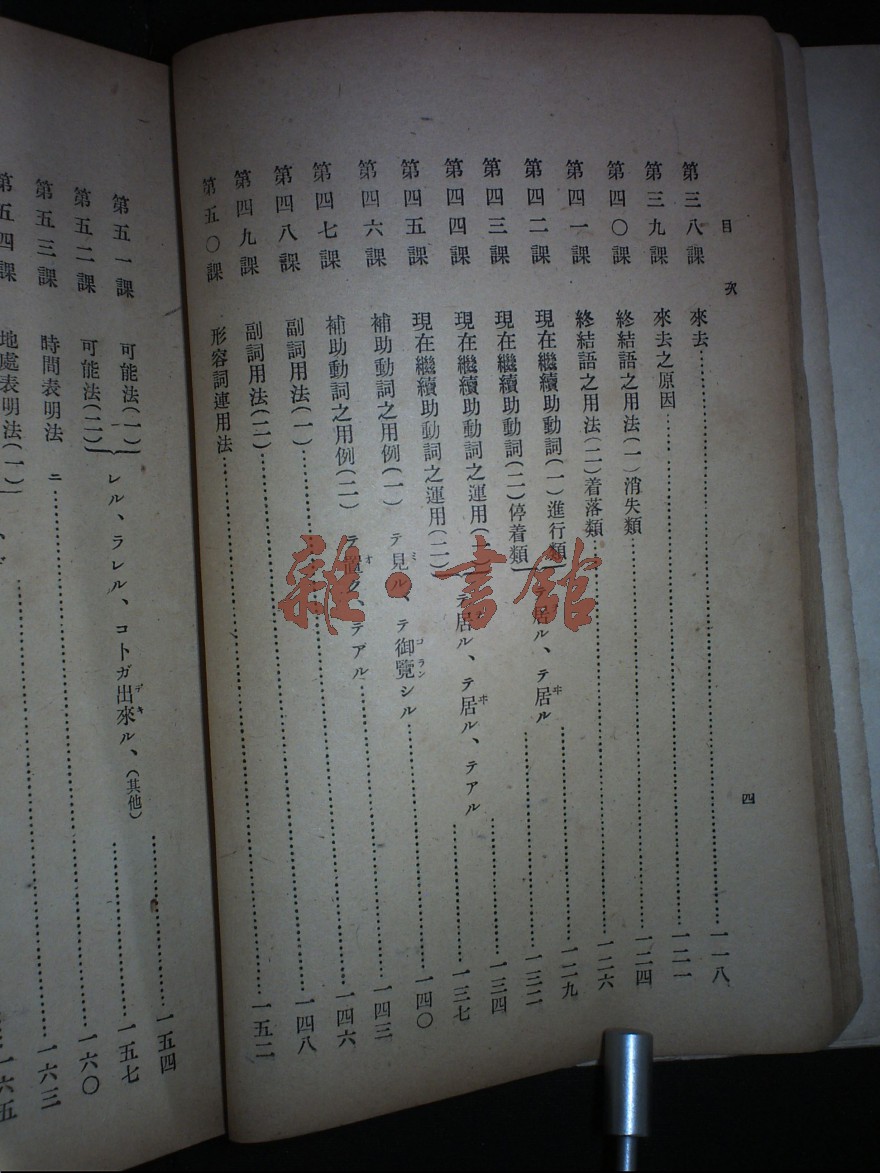 目次 四
第三八課 來去……一一八
第三九課 來去之原因……一二一
第四〇課 終結語之用法(一)消失類……一二四
第四一課 終結語之用法(二)着落類……一二六
第四二課 現在繼續助動詞(一)進行類……一二九
第四三課 現在繼續助動詞(二)停着類……一三二
テ居ル、テ居ヰル
第四四課 現在繼續助動詞之運用(一)……一三四
第四五課 現在繼續助動詞之運用(二)……一三七
テ居ル、テ居ヰル、テアル
第四六課 補助動詞之用例(一) テ見ミル、テ御覽ゴランシル……一四〇
第四七課 補助動詞之用例(二) テ置オク、テアル……一四三
第四八課 副詞用法(一)……一四六
第四九課 副詞用法(二)……一四八
第五〇課 形容詞連用法……一五二
第五一課 可能法(一)……一五四
第五二課 可能法(二)……一五七
レル、ラレル、コトガ出來デキル、(其他)
第五三課 時間表明法 ニ……一六〇
第五四課 地處表明法(一)……一六三
一六五
雜·書館